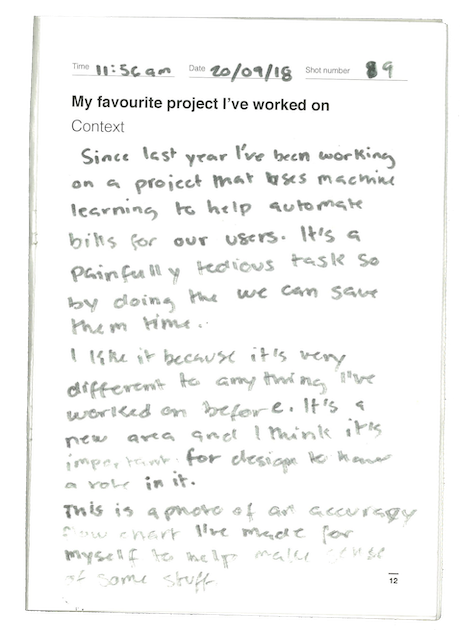 Time 11:56am Date 20/09/18 Shot number 89
My favourite project I've worked on
Context
Since last year I've been working
on a project that uses machine
learning to help automate
bills for our users. It's a
painfully tedious task so
by doing the we can save
them time.
I like it because it's very
different to anything I've
worked on before. It's a
new area and I think it's
important for design to have
a role in it.
This is a photo of an accuracy
flow chart I've made for
myself to help make sense
of some stuff.
12